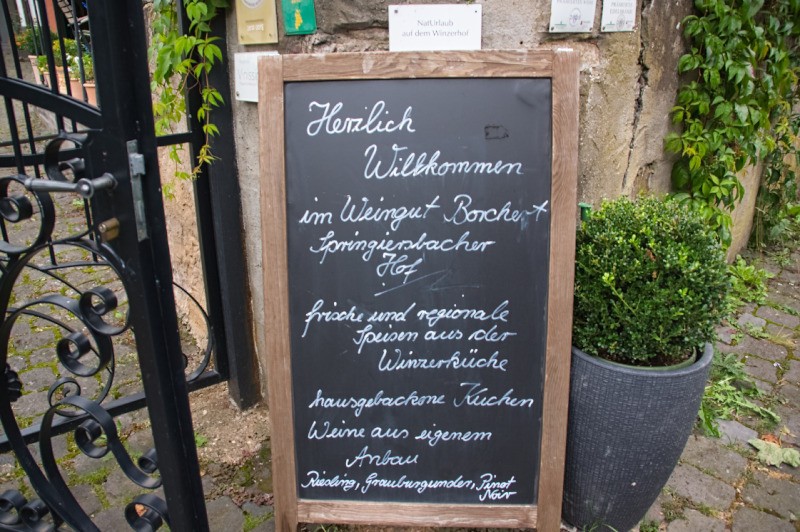 Natururlaub
auf dem Winzerhof
Herzlich
Willkommen
im Weingut Borchert
Springiersbacher
Hof
frische und regionale
Speisen aus der
Winzerküche
hausgebackene Kuchen
Weine aus eigenem
Anbau
Riesling, Grauburgunder, Pinot
Noir